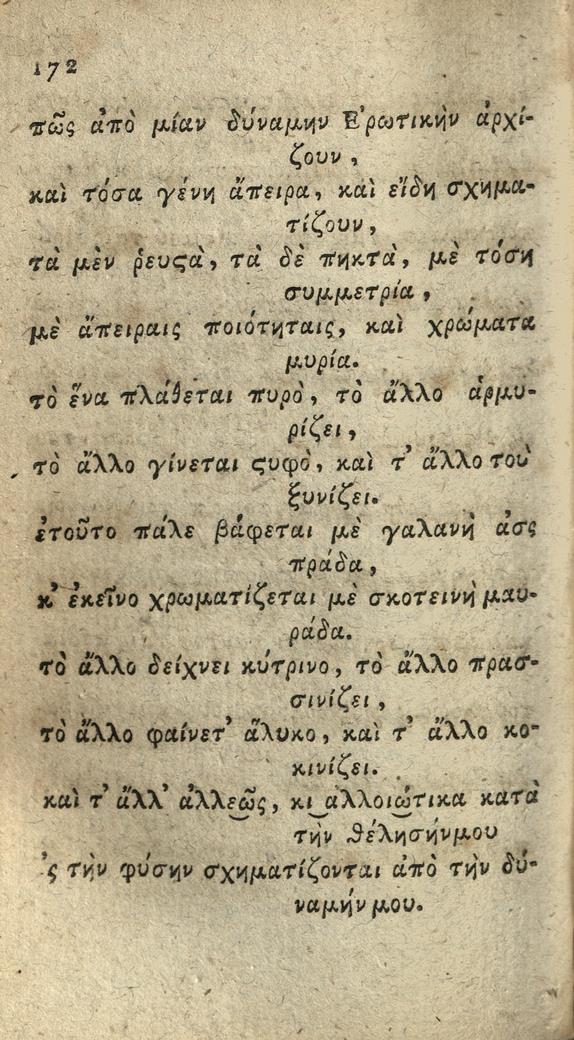 172
πῶς ἀπὸ μίαν δύναμην Ἐρωτικὴν ἀρχί-
ζουν,
καὶ τόσα γένη ἄπειρα, καὶ εἴδη σχημα-
τίζουν,
τὰ μὲν ῥευϛὰ, τὰ δὲ πηκτὰ, μὲ τόση
συμμετρία,
μὲ ἄπειραις ποιότηταις, καὶ χρώματα
μυρία.
τὸ ἕνα πλάθεται πυρὸ, τὸ ἄλλο ἁρμυ-
ρίζει,
τὸ ἄλλο γίνεται ϛυφὸ, καὶ τ' ἄλλο τοὺ
ξυνίζει.
ἐτοῦτο πάλε βάφεται μὲ γαλανὴ ἀσς
πράδα,
κ' ἐκεῖνο χρωματίζεται μὲ σκοτεινὴ μαυ-
ράδα.
τὸ ἄλλο δείχνει κύτρινο, τὸ ἄλλο πρασ-
σινίζει,
τὸ ἄλλο φαίνετ' ἄλυκο, καὶ τ' ἄλλο κο-
κινίζει.
καὶ τ' ἄλλ' ἀλλεῶς, κι ἀλλοιώτικα κατὰ
τὴν θέλησήνμου
'ς τὴν φύσην σχηματίζονται ἀπὸ τὴν δύ-
ναμήν μου.